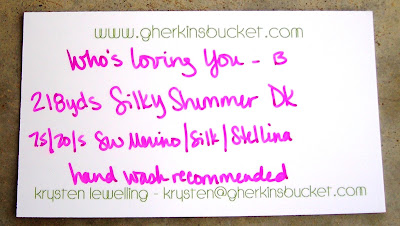 www.gherkinsbucket.com
Who's Loving You - B
218yds Silky Shimmer DK
75/20/5 SW Merino/Silk/Stellina
hand wash recommended
krysten lewelling - krysten@gherkinsbucket.com